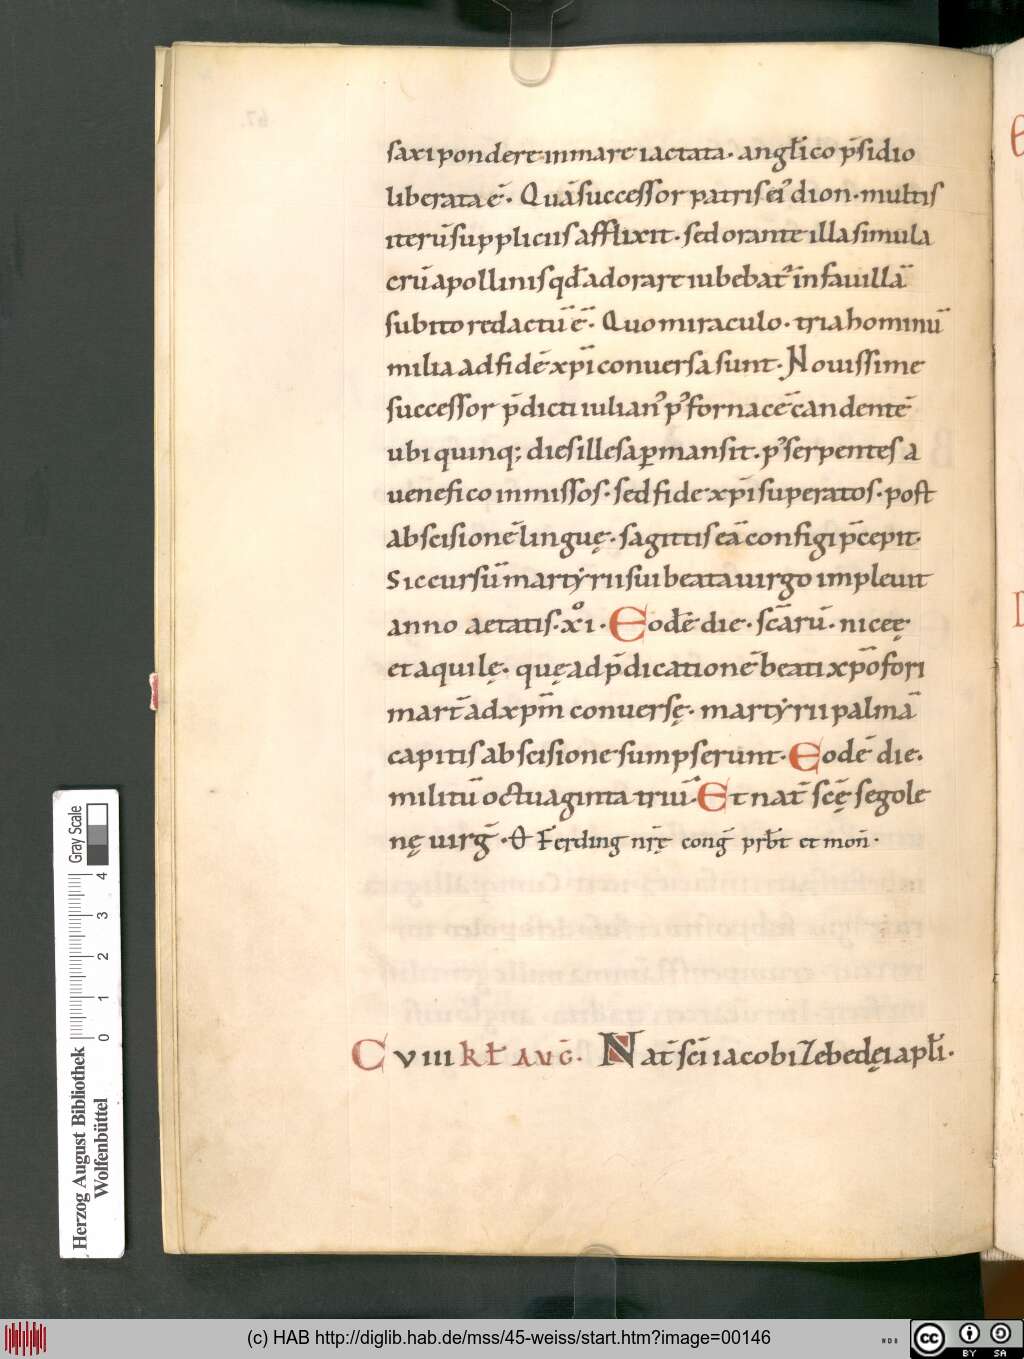 saxi pondere in mare iactata. anglico p̄sidio
liberata ē. Quā successor patris ei᾿ dion. multis
iterū suppliciis afflixit. sed orante illa simula
crū apollinis qđ adorare iubebat᾿ in fauillā
subito redactū ē. Quo miraculo. tria hominū
milia ad fidē xp̄i conuersa sunt. Nouissime
successor p̄dicti iulian᾿ p᾿ fornacē candentē
ubi quinq; dies illesa ꝑmansit. p᾿ serpentes a
uenefico inmissos. sed fide xp̄i superatos. post
abscisionē linguę. sagittis eā configi p̄cepit.
Sic cursū martẏrii sui beata uirgo impleuit
anno aetatis. xͦi. Eodē die. sc̄arū. nicetę
et aquilę. quę ad p̄dicationē beati xp̄ofori
mart̄ ad xp̄m conuersę. martẏrii palmā
capitis abscisione sumpserunt. Eodē die.
militū octuaginta triū. Et nat̄ sc̄ę segole
nę uirḡ. O Ferding nr̄ę cong̅ prb̄t et mon̄.
C VIII kł AUG̅. Nat̄ sc̄i iacobi Zebedęi apłi.
67.
Herzog August Bibliothek
Wolfenbüttel
0 1 2 3 4
Gray Scale
(c) HAB http://diglib.hab.de/mss/45-weiss/start.htm?image=00146
WDB
cc BY SA